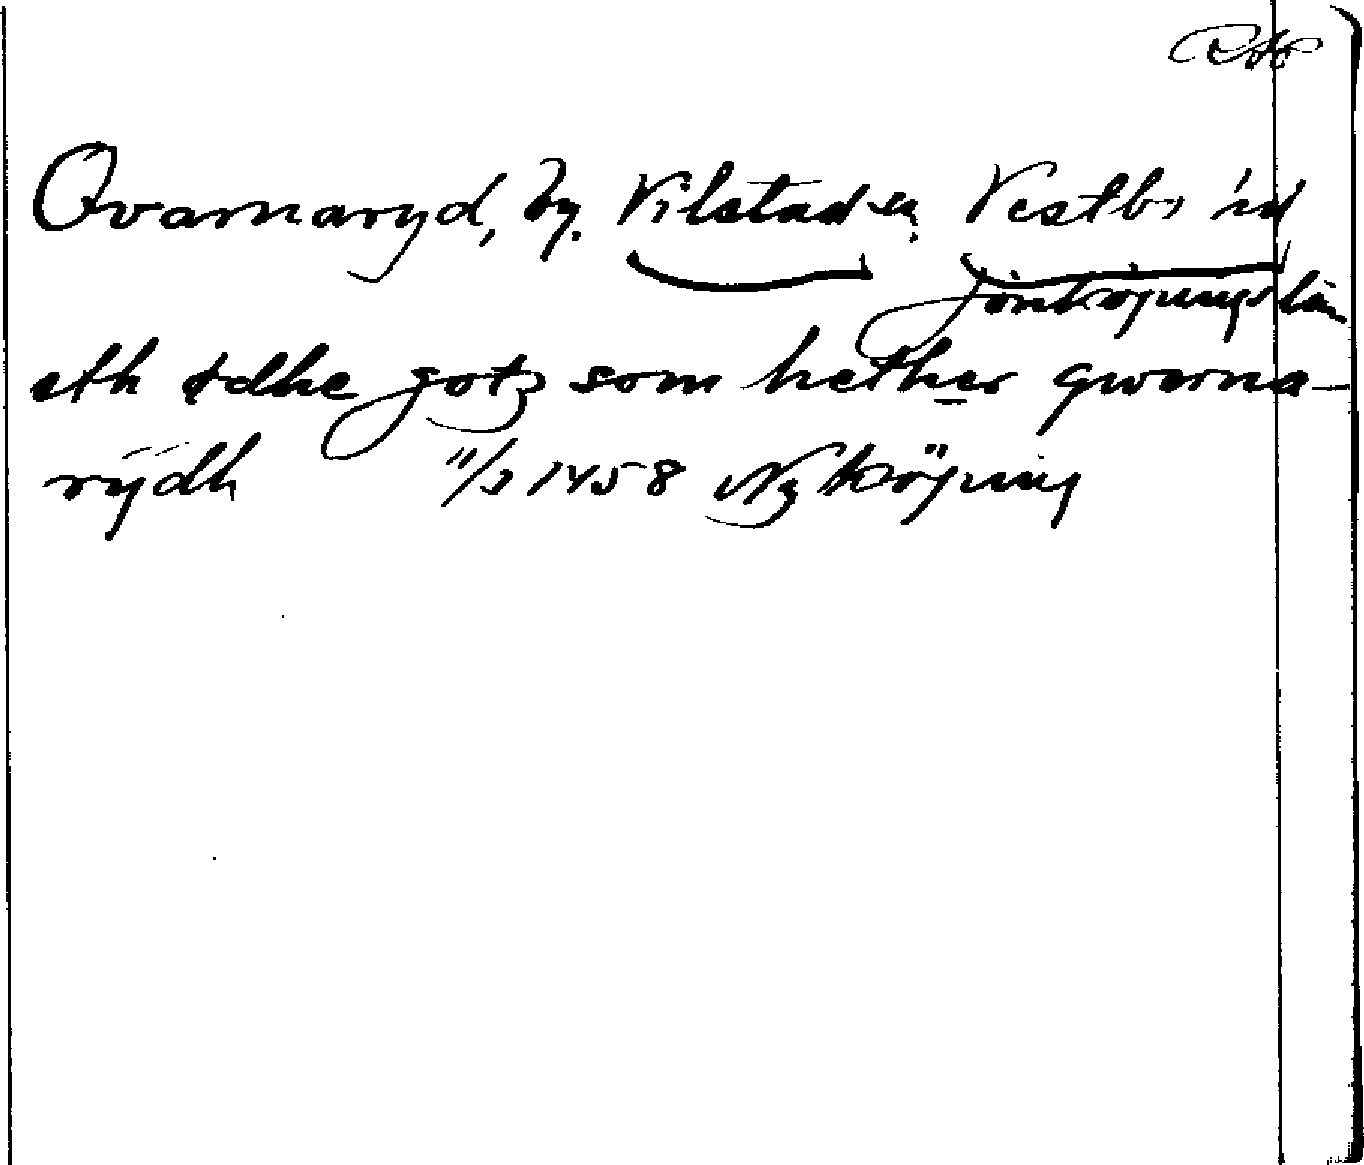 RAP
Qvarnaryd, by. Vilstad sn. Vestbo hd
Jönköpings län
eth ødhe gotz som hether qwerna-
rydh 11/3 1458 Nyköping